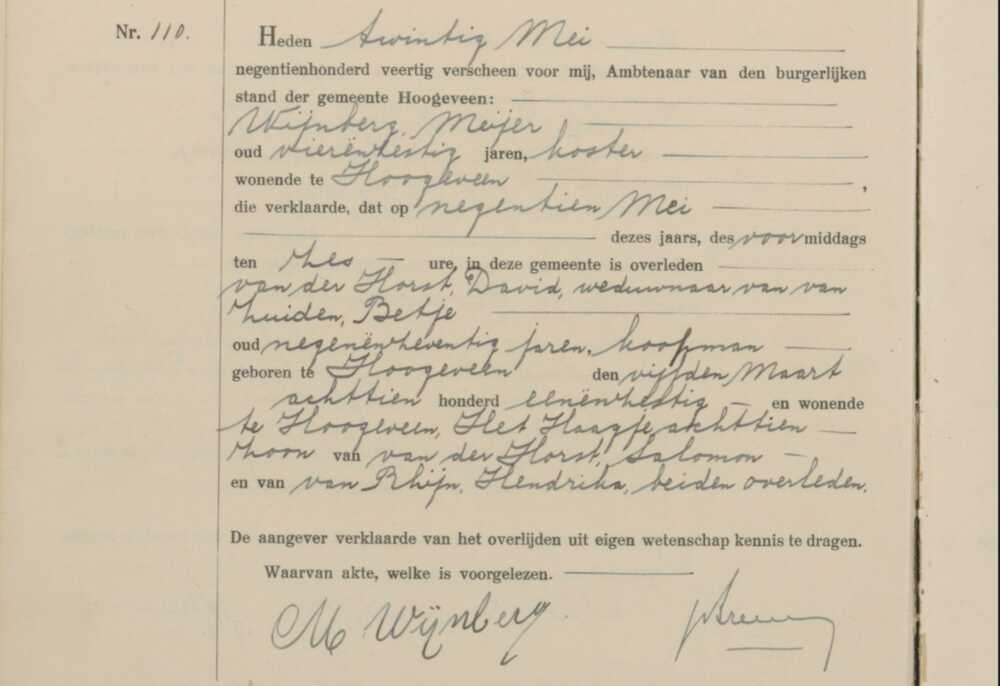 Nr. 110.
Heden twintig Mei
negentienhonderd veertig verscheen voor mij, Ambtenaar van den burgerlijken
stand der gemeente Hoogeveen:
Wijnberg, Meijer
oud vierënzestig jaren, koster
wonende te Hoogeveen ,
die verklaarde, dat op negentien Mei
dezes jaars, des voormiddags
ten zes ure, in deze gemeente is overleden
van der Horst, David, weduwnaar van van
Zuiden, Betje
oud negenënzeventig jaren, koopman
geboren te Hoogeveen den vijfden Maart
achttien honderd eenënzestig en wonende
te Hoogeveen, Het Haagje achttien
zoon van van der Horst, Salomon
en van van Rhijn, Hendrika, beiden overleden.
De aangever verklaarde van het overlijden uit eigen wetenschap kennis te dragen.
Waarvan akte, welke is voorgelezen.
M Wijnberg.